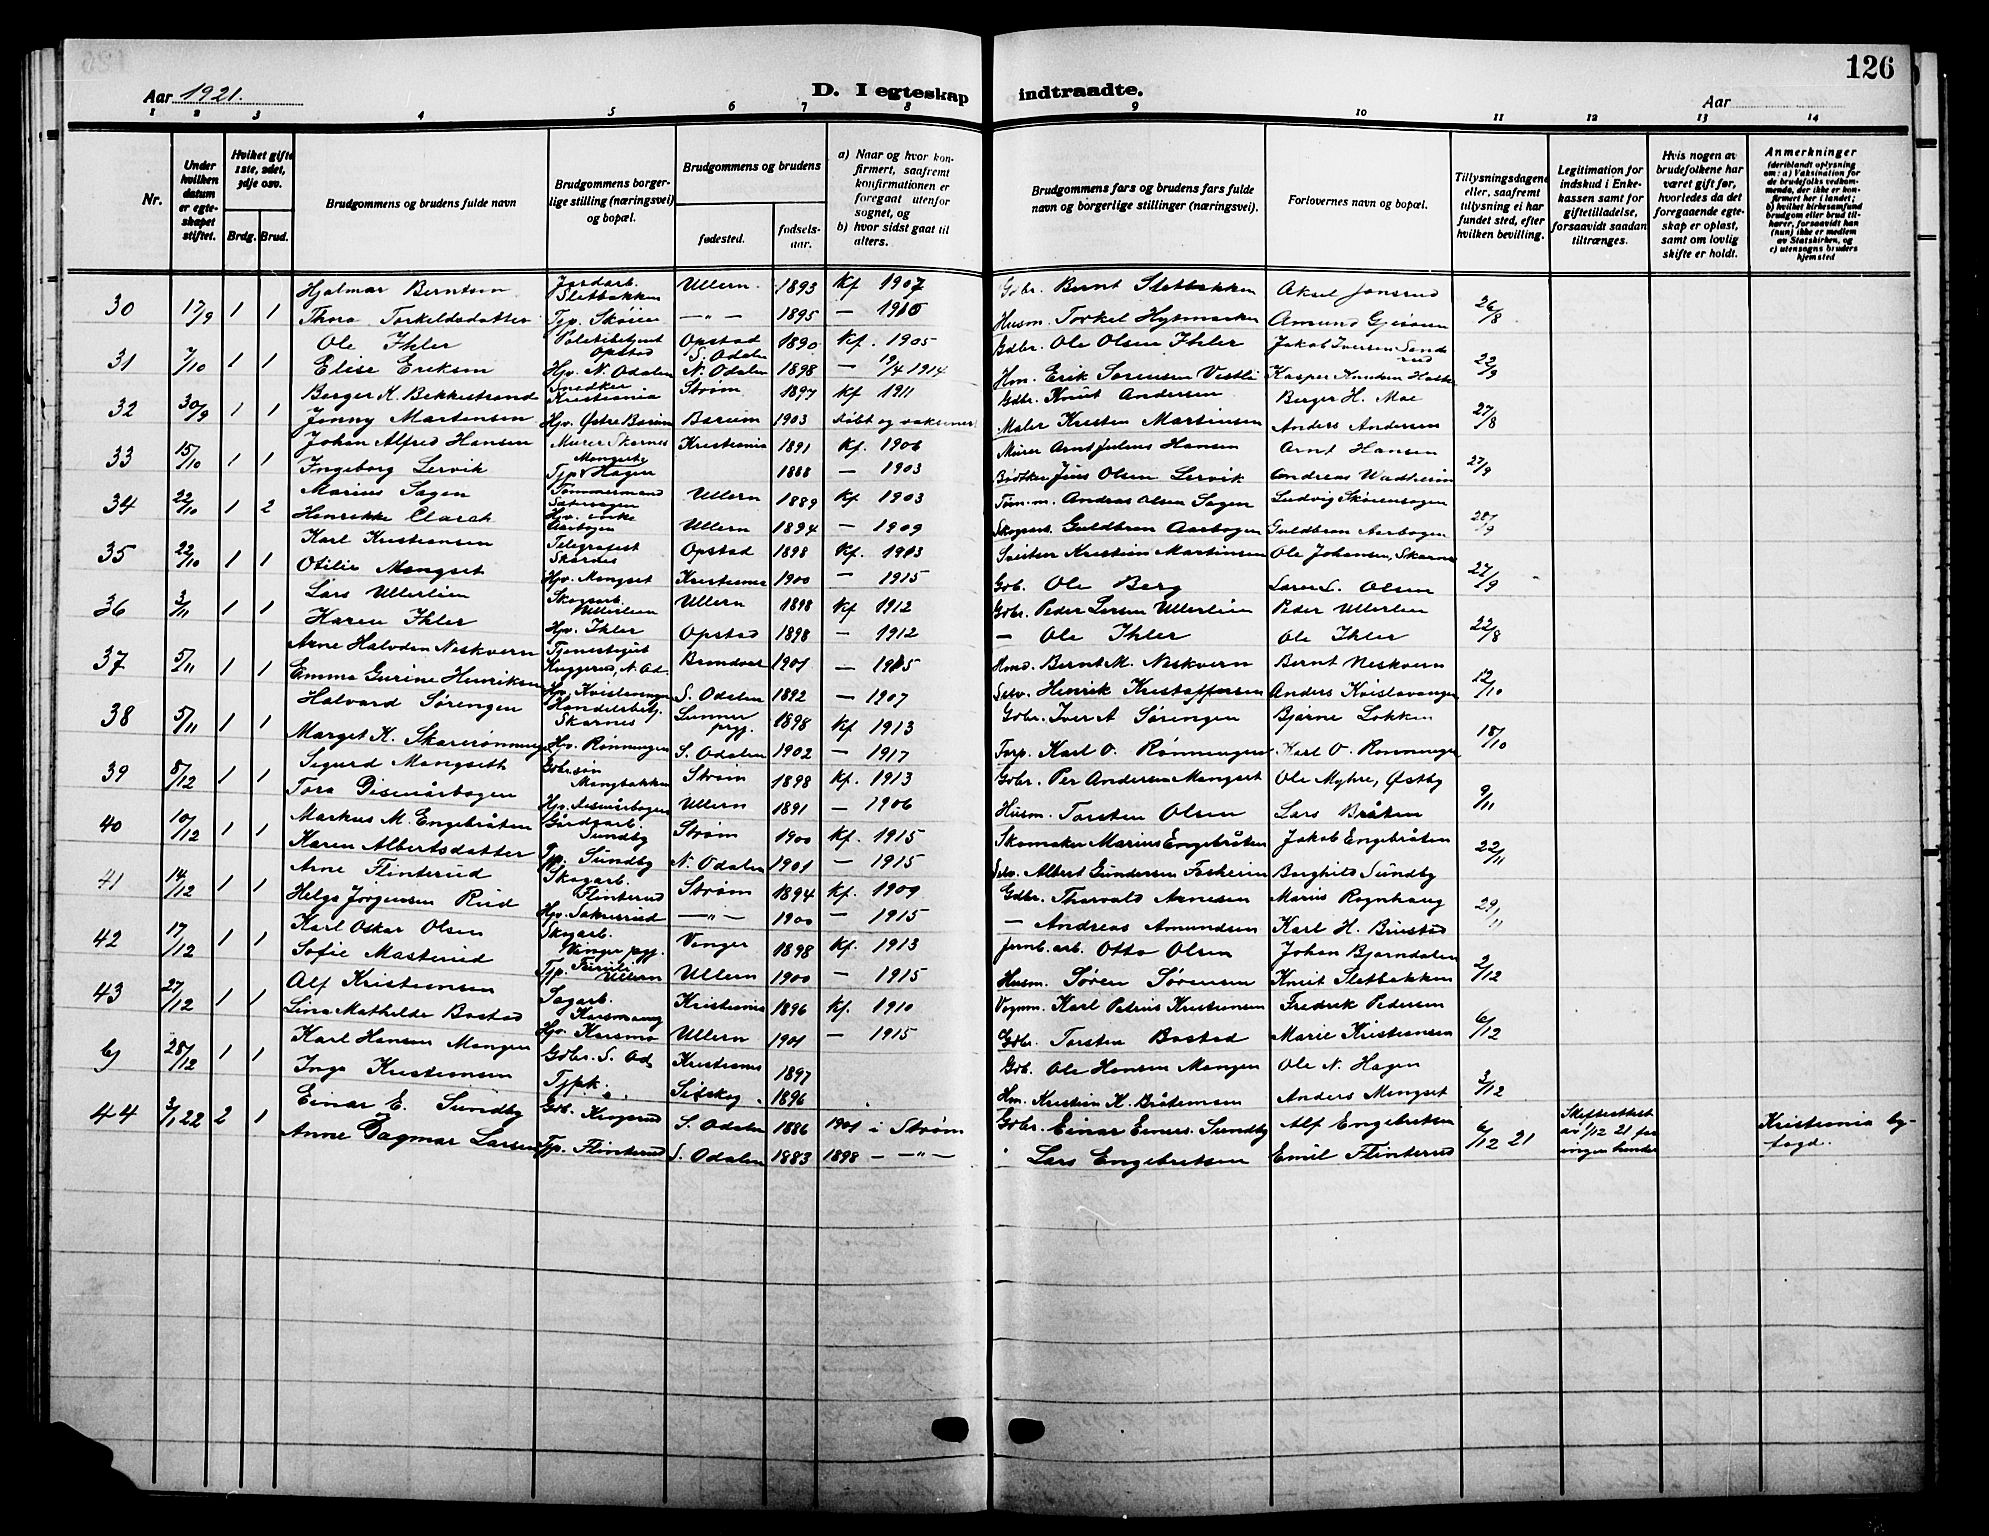 126
Aar 1921. D. I egteskap indtraadte. Aar
1 2 3 4 5 6 7 8 9 10 11 12 13 14
Nr.
Under hvilken datum er egteskapet stiftet.
Hvilket gifte 1ste, 2det, 3dje osv.
Brdg. Brud.
Brudgommens og brudens fulde navn
Brudgommens borgerlige stilling (næringsvei) og bopæl.
Brudgommens og brudens
fødested.
fødselsaar.
a) Naar og hvor konfirmert, saafremt konfirmationen er foregaat utenfor sognet, og
b) hvor sidst gaat til alters.
Brudgommens fars og brudens fars fulde navn og borgerlige stillinger (næringsvei).
Forlovernes navn og bopæl.
Tillysningsdagene eller, saafremt tillysning ei har fundet sted, efter hvilken bevilling.
Legitimation for indskud i Enkekassen samt for giftetilladelse, forsaavidt saadan tiltrænges.
Hvis nogen av brudefolkene har været gift før, hvorledes da det foregaaende egteskap er opløst, samt om lovlig skifte er holdt.
Anmerkninger (deriblandt oplysning om: a) Vaksination for de brudefolks vedkommende, der ikke er konfirmert her i landet; b) hvilket kirkesamfund brudgom eller brud tilhører, forsaavidt han (hun) ikke er medlem av Statskirken, og c) utensogns bruders hjemsted
30 17/9 1 1 Hjalmar Berntsen Jordarb. Sletbakken Ullern. 1893 Kf 1907 Gdbr. Bernt Sletbakken Aksel Jonsrud 26/8
Thora Torkeldsdatter Tjp. Skøien —"— 1895 — 1910 Husm. Torkel Hytmarken Amund
31 7/10 1 1 Ole Ihler Politibetjent Opstad Opstad S. Odalen 1890 Kf. 1905 Gdbr. Ole Olsen Ihler Jakob Iversen 22/9
Elise Eriksen Hjv. N. Odalen N. Odalen 1898 — 19/4 1914 Hm. Erik Sørensen Vestli Kasper Knudsen
32 30/9 1 1 Borger K. Bekkestrand Snedker Kristiania Strøm 1897 Kf 1911 Gdbr. Knut Andersen Berger H. Moe 27/8
Jenny Martensen Hjv. Østre Bærum Bærum 1903 døbt og vaksinert Maler Kristen Martinsen Anders Andersen
33 15/10 1 1 Johan Alfred Hansen Murer Skarnes Kristiania 1891 Kf. 1906 Murer Arnt Julius Hansen Arnt Hansen 27/9
Ingeborg Lervik Tjp. Hagen 1888 — 1903 Bødtker Jens Olsen Lervik Andreas
34 22/10 1 2 Marius Sagen Tømmermand Ullern 1889 Kf 1903 Tøm.m. Andreas Olsen Sagen Ludvig Skørensagen 28/9
Henrikke Ullern 1894 — 1909 Skogarb. Guldbran Aarbogen Guldbran Aarbogen
35 22/10 1 1 Karl Kristiansen Telegrafist Skarnes Opstad 1898 Kf. 1913 Kristian Martinsen Ole Johansen, Skarnes 27/9
Otilie Mangset Hjv. Mangset Kristiania 1900 — 1915 Gdb. Ole Berg L. Olsen
36 3/11 1 1 Lars Ullerlien Skogarb. Ullerlien Ullern 1898 Kf 1912 Gdbr. Peder Larsen Ullerlien Peder Ullerlien 22/8
Karen Ihler Hjv. Ihler Opstad 1898 — 1912 — Ole Ihler Ole Ihler
37 5/11 1 1 Arne Halvden Neskvern Tjenestegut N. Od. Brandval 1901 — 1915 Hmd. Bernt M. Neskvern Bernt Neskvern 12/10
Emma Gurine Henriksen Hjv. S. Odalen 1892 — 1907 Selv. Henrik Kristoffersen Anders
38 5/11 1 1 Halvard Sørengen Handelsbetj. Skarnes 1898 Kf 1913 Gdbr. Iver A Sørengen Bjarne Løkken 18/10
Marget K. Hjv. Rønningen S. Odalen 1902 — 1917 Torp. Karl O. Rønningen Karl O. Rønningen
39 8/12 1 1 Sigurd Mangseth Gdbr.søn Mangbakken Strøm 1898 Kf. 1913 Gdbr. Per Andersen Mangset Ole Myhre, Østby 9/11
Tora Disenårbogen Hjv. Ullern 1891 — 1906 Husm. Torsten Olsen Lars Bråten
40 10/12 1 1 Markus M. Engebråten Gårdsarb. Sundby Strøm 1900 Kf. 1915 Skomaker Marius Engebråten Jakob Engebråten 22/11
Karen Albertsdatter Tjp. Sundby N. Odalen 1901 — 1915 Selv. Albert Gundersen Borghild Sundby
41 14/12 1 1 Arne Flinterud Skogarb. Flinterud Strøm 1894 Kf. 1909 Gdbr. Thorvald Arnesen Marius Rognhaug 29/11
Helga Jørgensen Rud Hjv. —"— 1900 — 1915 — Andreas Amundsen Karl H.
42 17/12 1 1 Karl Oskar Olsen Skogarb. Vinger pgj. Vinger 1898 Kf. 1913 Jernb.arb. Otto Olsen Johan Bjørndalen 2/12
Sofie Masterud Tjp. Ullern Ullern 1900 — 1915 Husm. Søren Sørensen Knut Sletbakken
43 27/12 1 1 Alf Kristiansen Sagarb. Kristiania 1896 Kf. 1910 Vognm. Karl Petrus Kristiansen Fredrik Pedersen 6/12
Lina Mathilde Bostad Hjv. Ullern 1901 — 1915 Gdbr. Torsten Bostad Marie Kristiansen
b) 28/12 1 1 Karl Hansen Mangen Gdbr. S. Od. Kristiania 1897 Gdb. Ole Hansen Mangen Ole N. Hagen 3/12
Inga Kristiansen Tjpk. Sidskog. 1896 Hm. Kristian K. Bråtensen Anders Mangset
44 3/1 22 2 1 Einar E. Sundby Gdb. S. Odalen 1886 1901 i Strøm Gdbr. Einar Einers. Sundby Alf Engebretsen 6/12 21 Skifteattest av 1/12 21 Kristiania byfogd.
Anne Dagmar Larsen Tjp. Flinterud S. Odalen 1883 1898 — —"— Lars Engebretsen Emil Flinterud